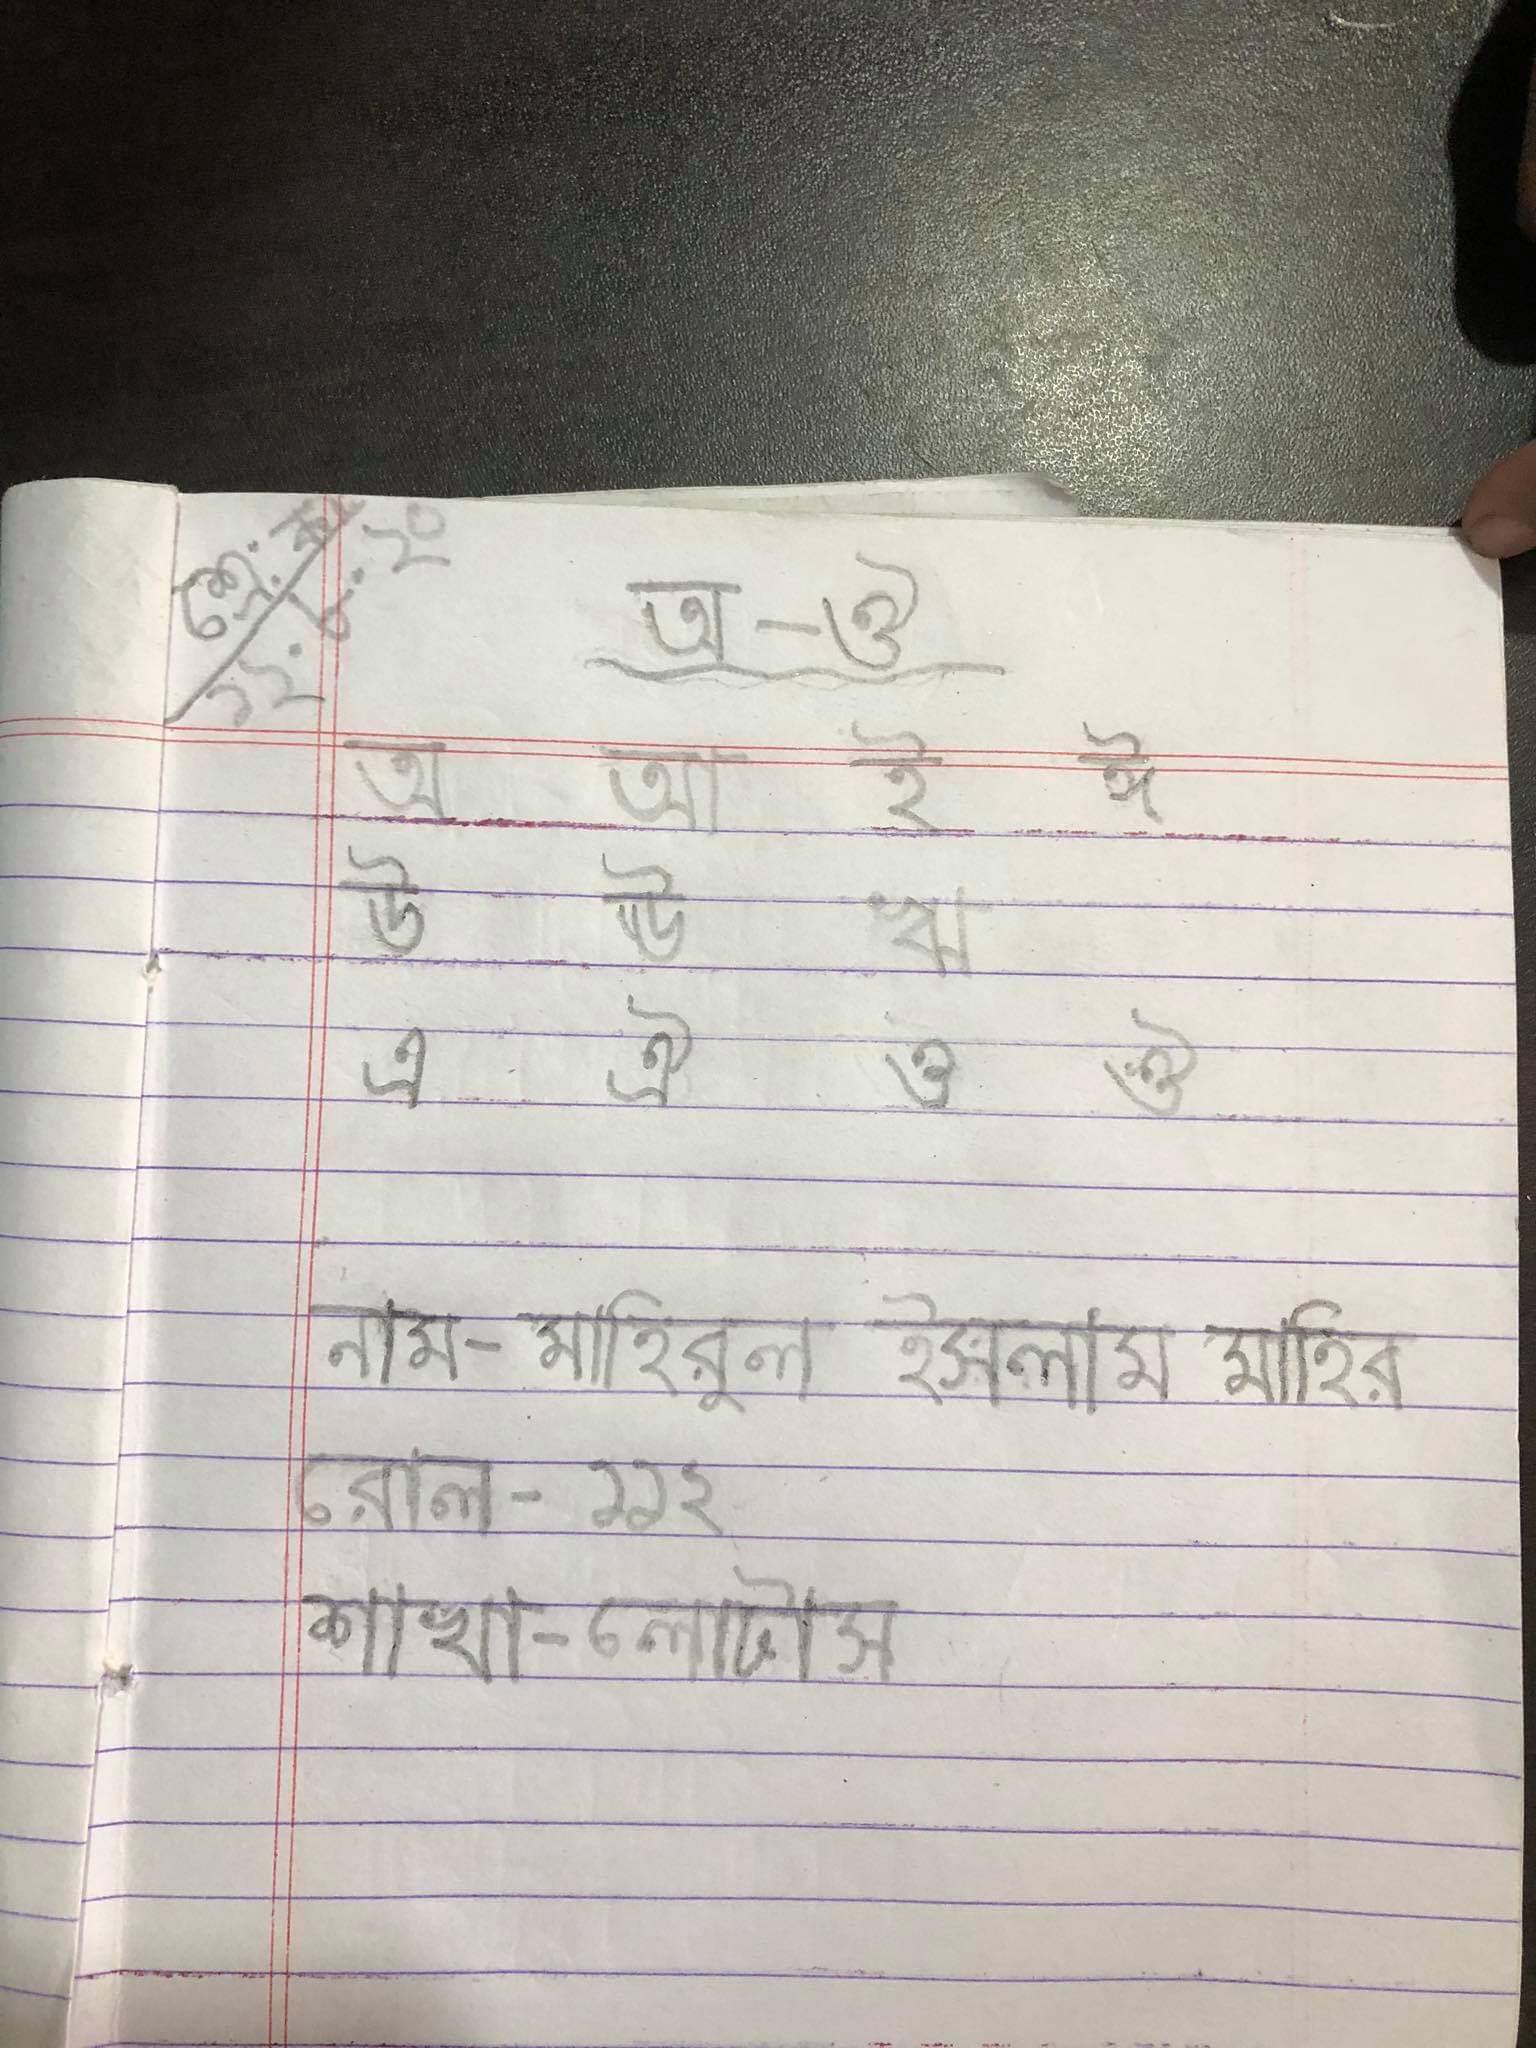 শ্রে: কা
১২.৮.২০
অ - ঔ
অ আ ই ঈ
উ ঊ ঋ
এ ঐ ও ঔ
নাম - মাহিরুল ইসলাম মাহির
রোল - ১১২
শাখা - লোটাস